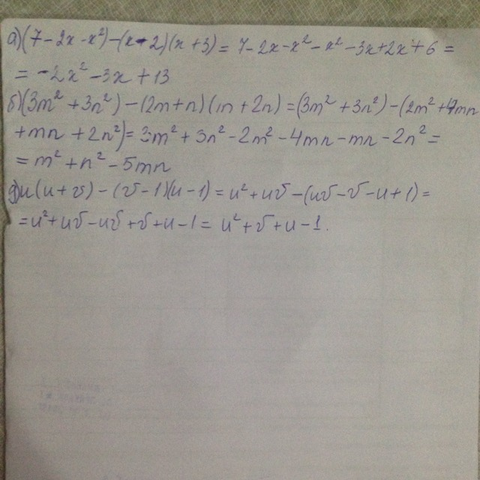 а) (7-2x-x²)-(x-2)(x+3)=7-2x-x²-x²-3x+2x+6=
=-2x²-3x+13
б) (3m²+3n²)-(2m+n)(m+2n)=(3m²+3n²)-(2m²+4mn
+mn+2n²)=3m²+3n²-2m²-4mn-mn-2n²=
=m²+n²-5mn
g) u(u+v)-(v-1)(u-1)=u²+uv-(uv-v-u+1)=
=u²+uv-uv+v+u-1=u²+v+u-1.